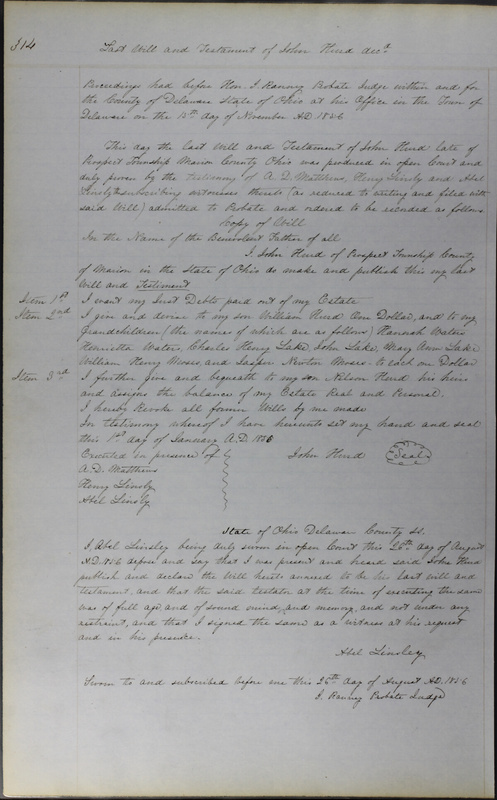 314
Last Will and Testament of John Hurd decd
Proceedings had before Hon. I. Ranney Probate Judge within and for
the County of Delaware State of Ohio at his Office in the Town of
Delaware on the 15th day of November A.D. 1856
This day the last Will and Testament of John Hurd late of
Prospect Township Marion County Ohio was produced in open Court and
duly proven by the testimony of A. D. Matthews, Henry Linsly and Abel
Linsly subscribing witnesses thereto (as reduced to writing and filed with
said Will) admitted to Probate and ordered to be recorded as follows
Copy of Will
In the Name of the Benevolent Father of all
I John Hurd of Prospect Township County
of Marion in the State of Ohio do make and publish this my last
Will and Testament
Item 1st I want my Just Debts paid out of my Estate
Item 2nd I give and devise to my son William Hurd One Dollar, and to my
grandchildren (the names of which are as follows) Hannah Waters
Henrietta Waters, Charles Henry Lake, John Lake, Mary Ann Lake
William Henry Moses, and Jasper Newton Moses to each one Dollar
Item 3rd I further give and bequeath to my son Nelson Hurd his heirs
and assigns the balance of my Estate Real and Personal.
I hereby Revoke all former Wills by me made
In testimony whereof I have hereunto set my hand and seal
this 1st day of January A.D. 1856
Executed in presence of John Hurd Seal
A. D. Matthews
Henry Linsly
Abel Linsly
State of Ohio Delaware County ss.
I, Abel Linsley being duly sworn in open Court this 26th day of August
A.D. 1856 depose and say that I was present and heard said John Hurd
publish and declare the Will hereto annexed to be his last will and
testament, and that the said testator at the time of executing the same
was of full age, and of sound mind, and memory, and not under any
restraint, and that I signed the same as a witness at his request
and in his presence.
Abel Linsley
Sworn to and subscribed before me this 26th day of August A.D. 1856
I. Ranney Probate Judge